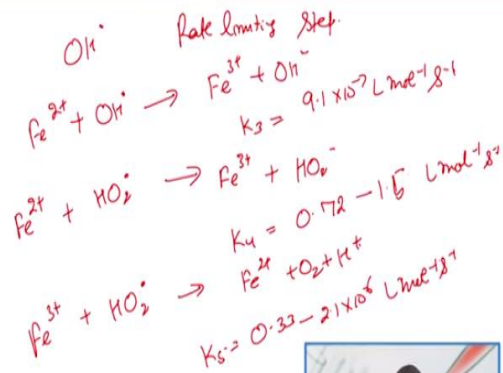 OH• Rate limiting step.
Fe²⁺ + OH• → Fe³⁺ + OH⁻
K₃ = 9.1 × 10⁻⁷ L mol⁻¹ S⁻¹
Fe²⁺ + HO₂• → Fe³⁺ + HO₂⁻
K₄ = 0.72 – 1.5 L mol⁻¹ S⁻¹
Fe³⁺ + HO₂• → Fe²⁺ + O₂ + H⁺
K₅ = 0.33 – 2.1 × 10⁶ L mol⁻¹ S⁻¹